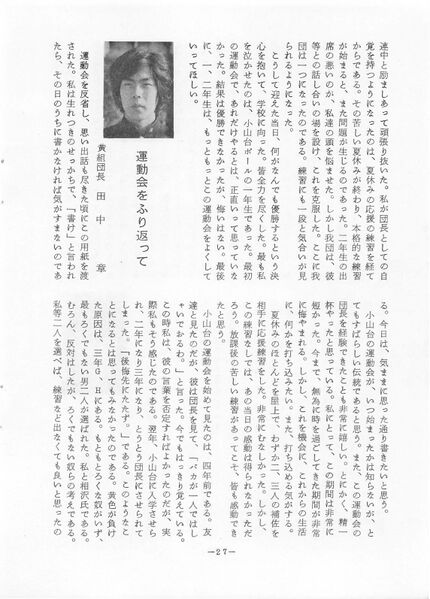 連中と励ましあって頑張り抜いた。私が団長としての自
覚を持つようになったのは、夏休みの応援の練習を経て
からである。その苦しい夏休みが終わり、本格的な練習
が始まると、また問題が生じるのであった。二年生の出
席の悪いのが、私達の頭を悩ませた。しかし我団は、彼
等との話し合いの場を設け、これを克服した。ここに我
団は一つになったのである。練習にも一段と気合いが見
られるようになった。
こうして迎えた当日、何がなんでも優勝するという決
心を抱いて、学校に向った。皆全力を尽くした。最も私
を泣かせたのは、小山台ボールの一年生であった。最初
の運動会で、あれだけやるとは、正直いって思っていな
かった。結果は優勝できなかったが、悔いはない。最後
に、一、二年生は、もっともっとこの運動会をよくして
いってほしい。
運動会をふり返って
黄組団長 田中 章
運動会を反省し、思い出話も尽きた頃にこの用紙を渡
された。私は生れつきのせっかちで、「書け」と言われ
たら、その日のうちに書かなければ気がすまないのであ
る。今日は、気ままに思った通り書きたいと思う。
小山台の運動会が、いつ始まったかは知らないが、と
てもすばらしい伝統であると思う。また、この運動会の
団長を経験できたことも非常に嬉しい。とにかく、精一
杯やったと思っている。私にとって、この期間は非常に
短かった。今まで、無為に時を過ごしてきた期間が非常
に悔やまれる。しかし、これを機会に、これからの生活
に、何かを打ち込みたい。また、打ち込める気がする。
夏休みのほとんどを屋上で、わずか二、三人の補佐を
相手に応援練習をした。非常にむなしかった。しかし、
この練習なしでは、あの当日の感動は得られなかっただ
ろう。放課後の苦しい練習があってこそ、皆も感動でき
たと思う。
小山台の運動会を始めて見たのは、四年前である。友
達と見たのだが、彼は団長を見て、「バカが一人ではし
ゃいでおるわ。」と言った。今でもはっきり覚えている。
この時私は、彼の言葉を否定すればよかったのだが、実
際私もそう感じたのである。翌年、小山台に入学させら
れ、二年になり三年になり、とうとう団長にさせられて
しまった。「後悔先にたたず。」である。このようなこ
とになるとは思ってもみなかったのである。黄色が負け
た原因は、三年生、HとGあるのもともとろくな奴がいず、
最もろくでもない男二人が選ばれた。私と相沢氏である。
むろん、反対はしたが、ろくでもない奴らの考えである。
私等二人を選べば、練習など出なくても良いと思ったの
—27—